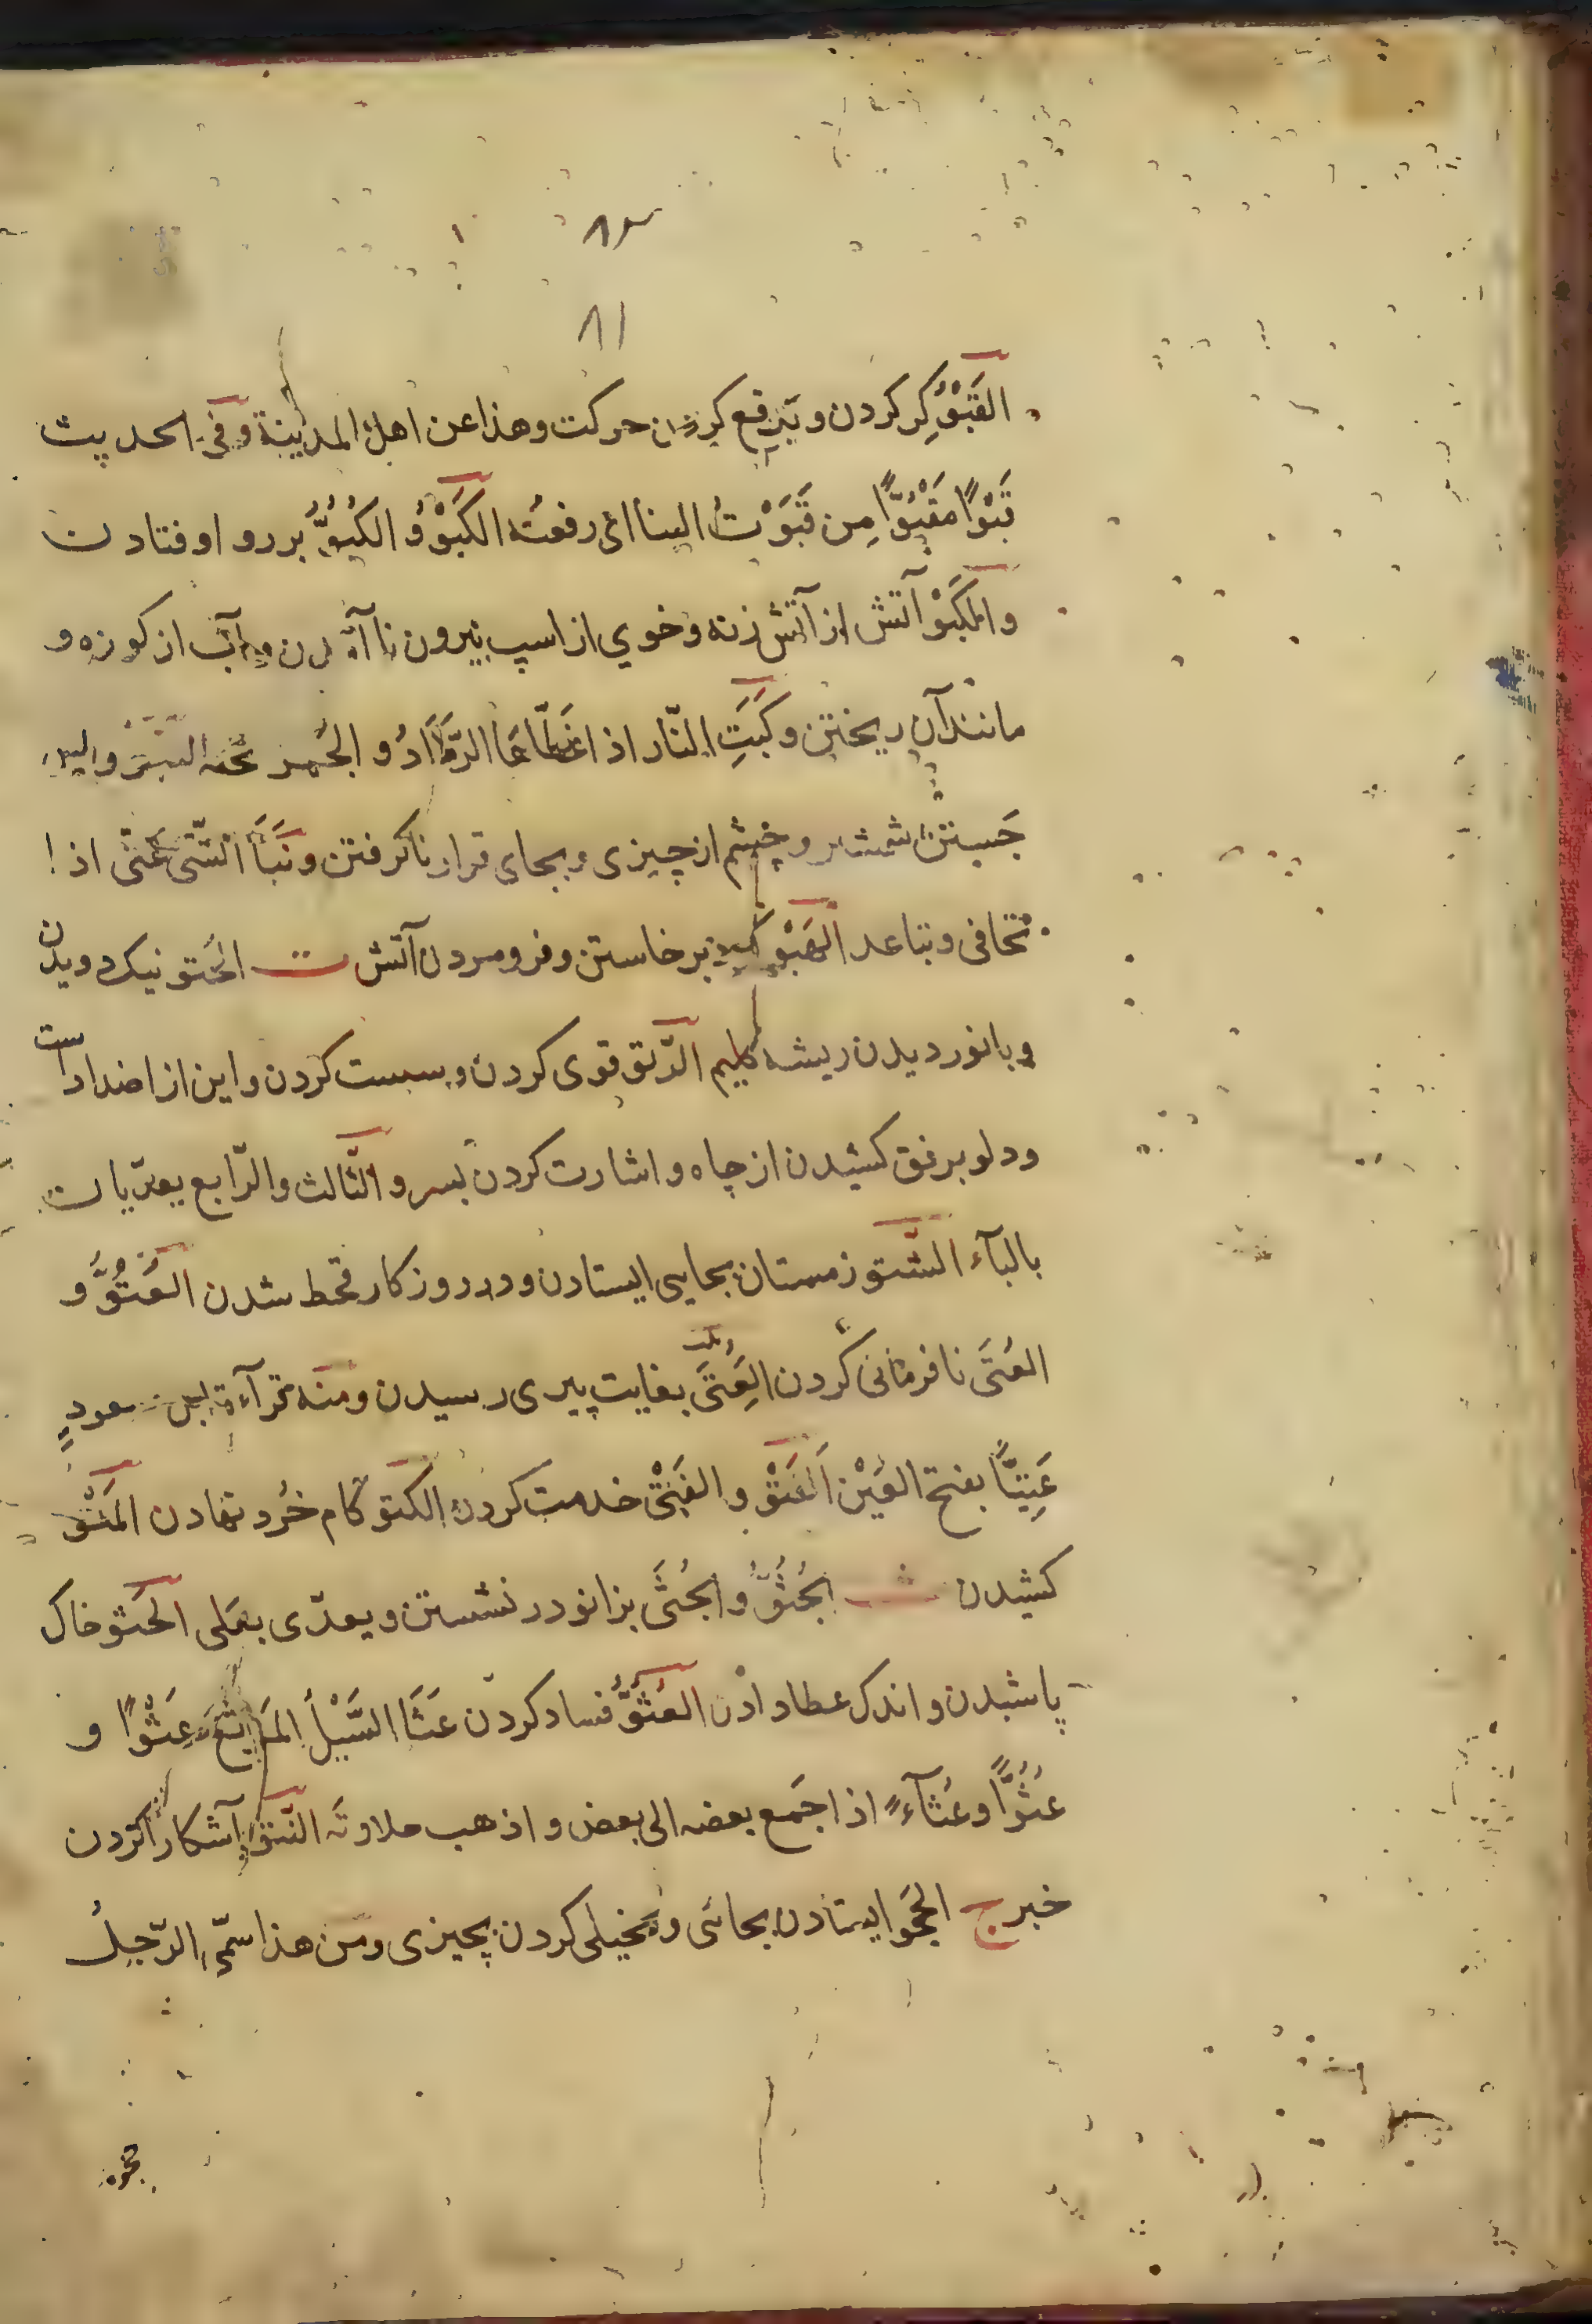 ۸۲
۸۱
القَبْوُ گِرد کردن و برفع کردن حرکت وهذا عن اهل المدینة وفی الحدیث
قَبْوًا مَقْبُوًّا مِن قَبَوْتُ البنا ای رفعته الکَبْوُ و الکُبُوُّ بررو اوفتادن
والکَبْو آتش از آتش زنه وخوي از اسپ بیرون ناآمدن و آب از کوزه و
مانند آن ریختن و کَبَتِ النّار اذا غطّاها الرّمادُ و الجُمر تحته النبو و
جَستن شمشیر و چشم از چیزی و بجای قرار ناگرفتن و نَبَا الشّیء عنّی اذا
تجافی وتباعد الهَبْو برخاستن و فرو مردن آتش ت الحُتو نیک دویدن
و بانوردیدن ریشه گلیم الرّتو قوی کردن و سست کردن و این از اضداد است
و دلو برفق کشیدن از چاه و اشارت کردن بسر و الثّالث والرّابع یعدّیان
بالبآء الشّتو زمستان بجایی ایستادن و در روزگار قحط شدن العُتُوُّ و
العُتَی نافرمانی کردن العِتَی بغایت پیری رسیدن ومنه قرآءة ابن مسعودٍ
عَتِیًّا بفتح العَیْن القَتْو و القَتْی خدمت کردن الکتو گام خُرد نهادن المَتْو
کشیدن ث الجُثُوُّ و الجُثَی بزانو در نشستن و یعدّی بعَلی الحَثو خاک
پاشیدن و اندک عطا دادن العُثُوُّ فساد کردن غَثَا السَّیْلُ المَرْتَعَ غَثْوًا و
غُثُوًّا وغُثآءً اذا جَمع بعضه الی بعض و اذهب حلاوته النّثو آشکارا کردن
خبر ج الحَجو ایستادن بجائی و بخیلی کردن بچیزی ومن هذا سمّی الرّجلُ
حجوة